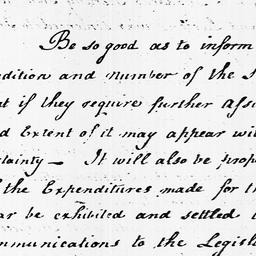 Be so good as to inform
dition and number of the
if they require further
d Extent of it may appear wi
tainty — It will also be prop
the Expenditures made for th
ar be exhibited and settled
mmunications to the Legisl